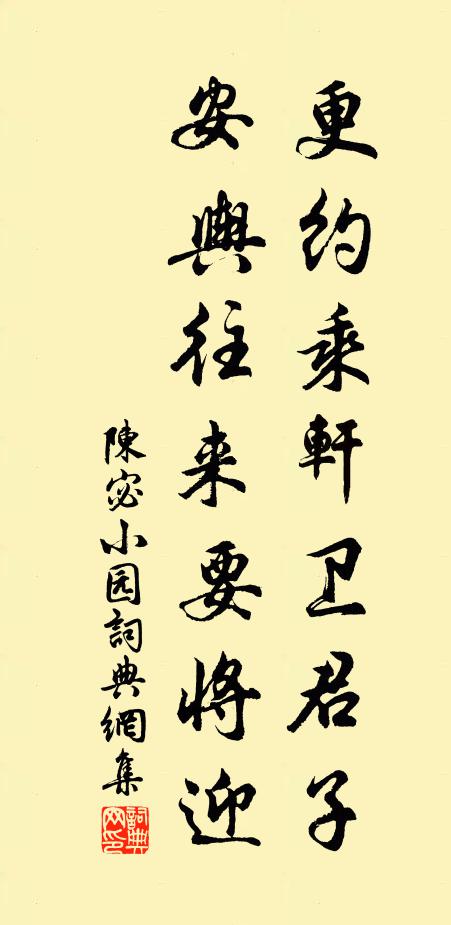 更约乘軒卫君子
安輿往来要将迎
陳宓小园詞典網集
詞典网印